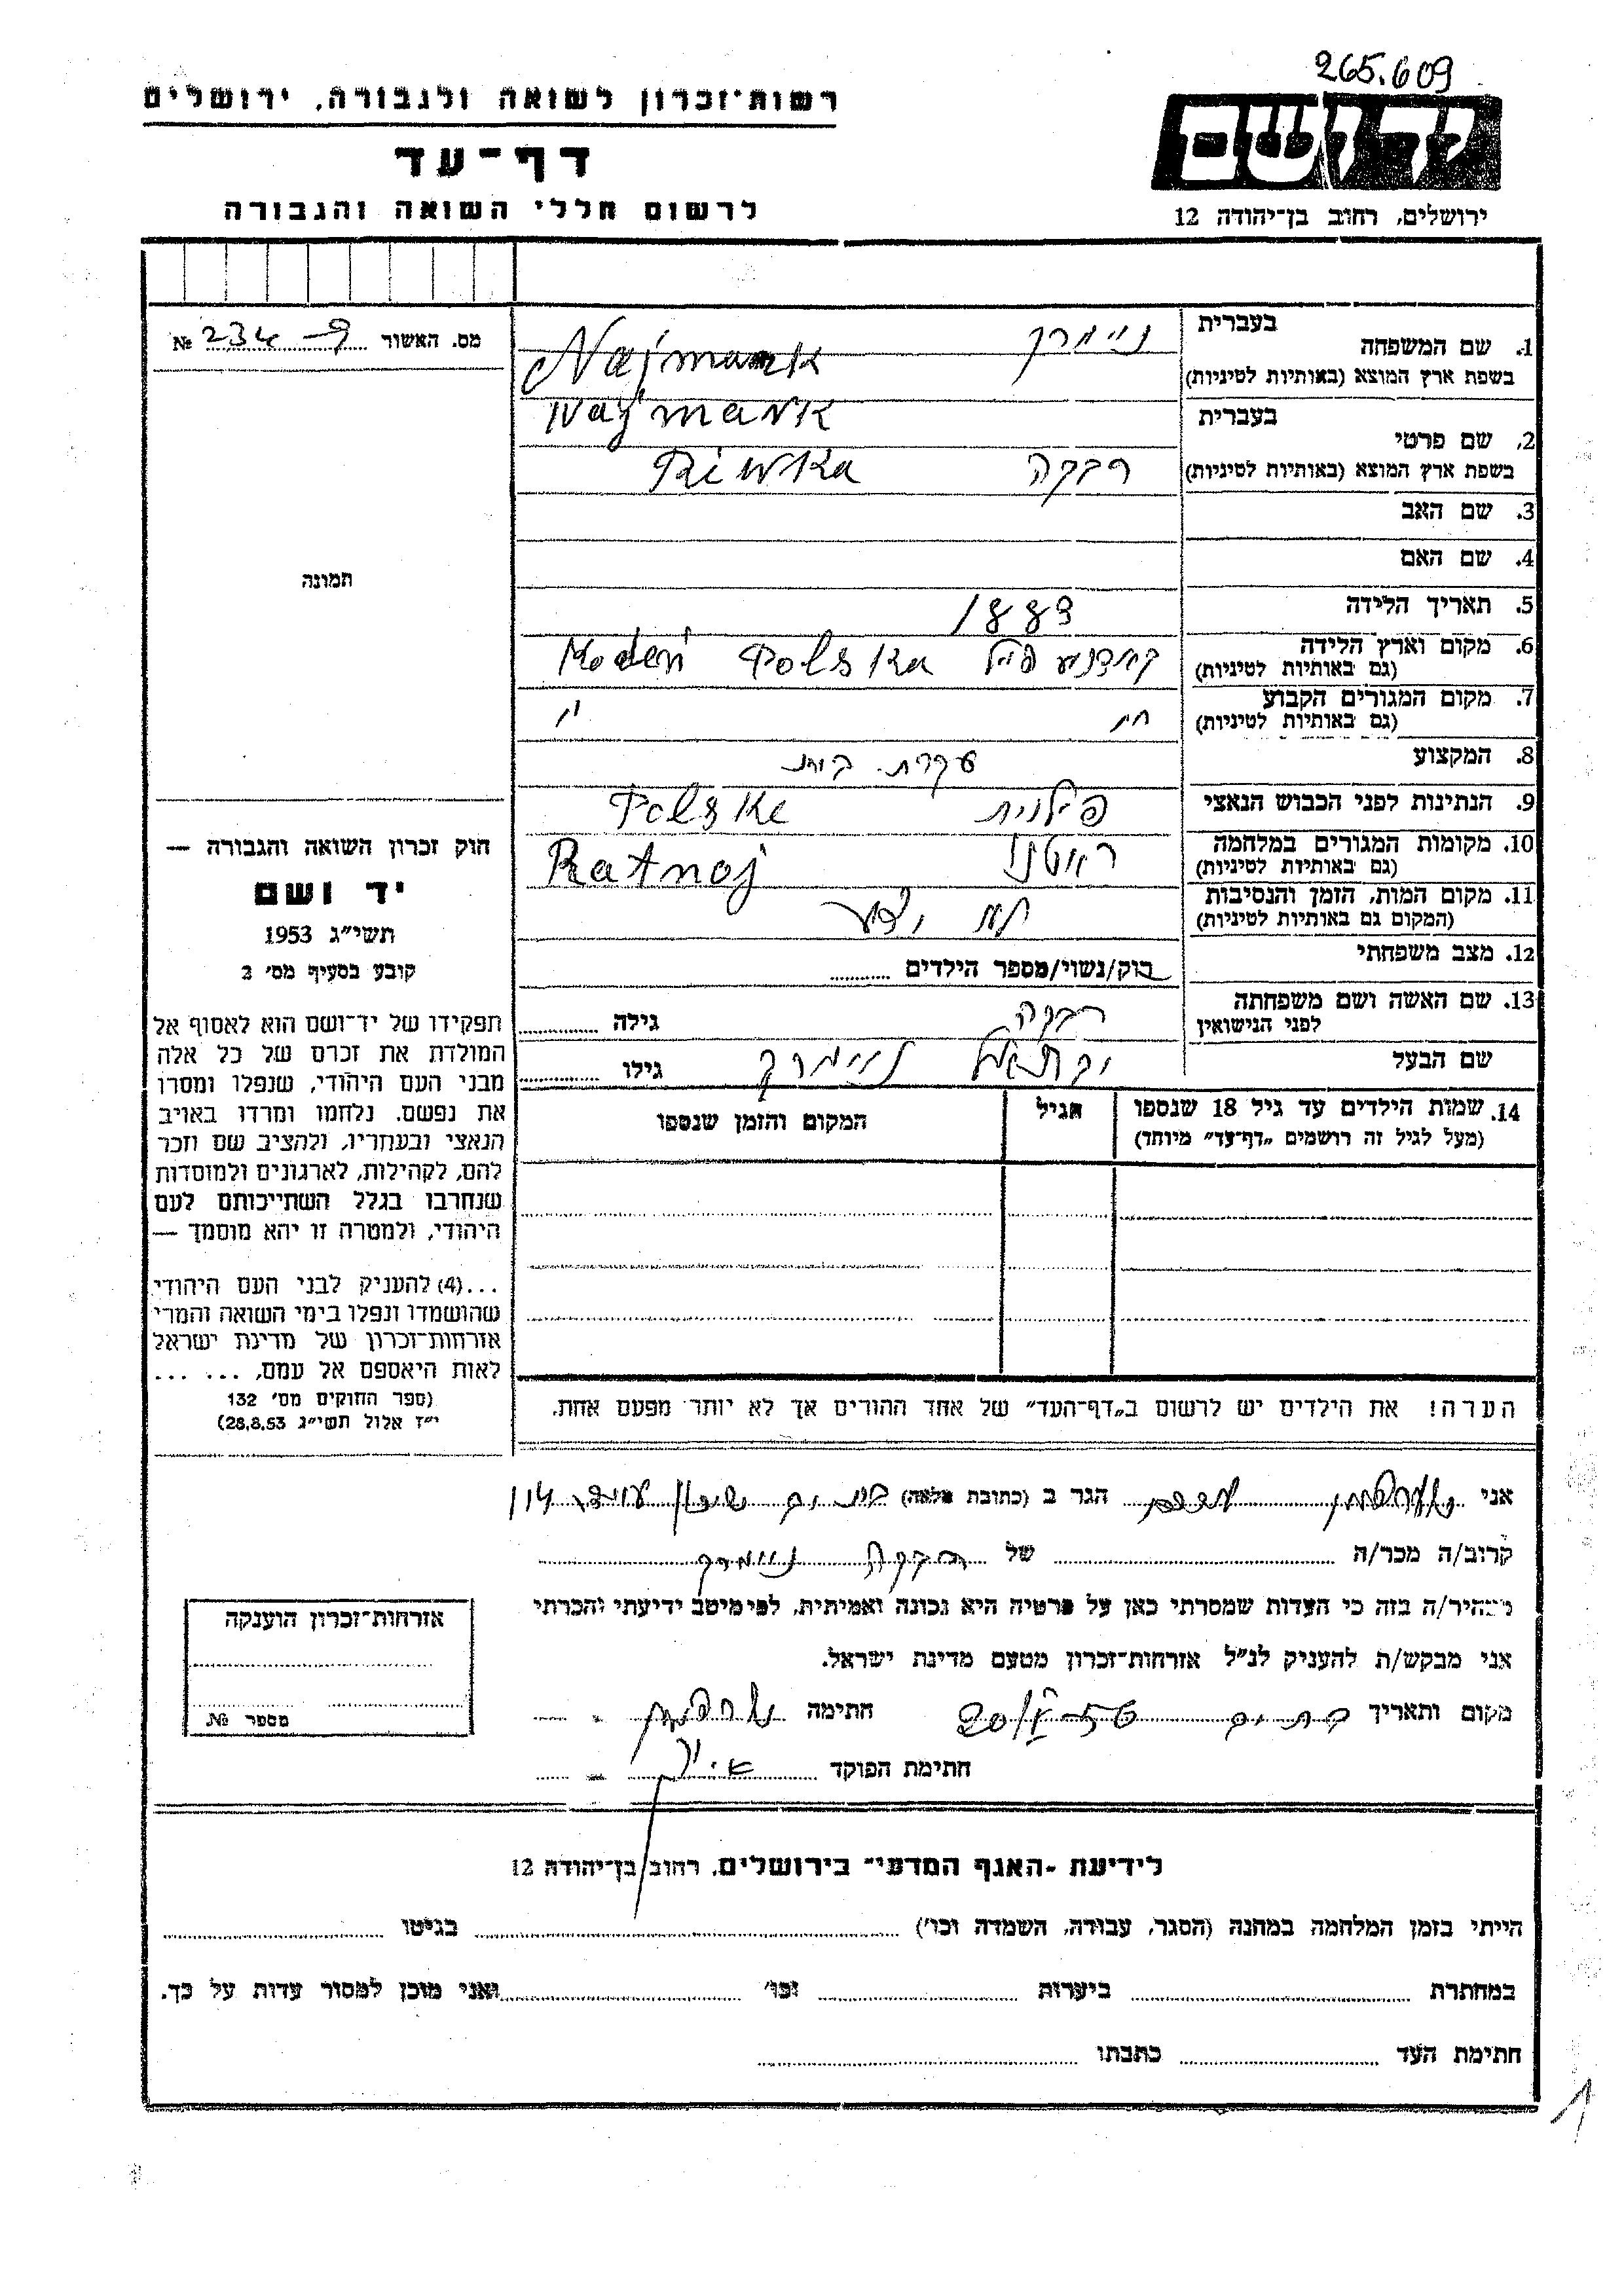 265.609
ידושם
ירושלים, רחוב בן־יהודה 12
רשות־זכרון לשואה ולגבורה, ירושלים
דף־עד
לרשום חללי השואה והגבורה
מס. האשור 234 №
תמונה
חוק זכרון השואה והגבורה —
יד ושם
תשי״ג 1953
קובע בסעיף מס׳ 2
תפקידו של יד־ושם הוא לאסוף אל
המולדת את זכרם של כל אלה
מבני העם היהודי, שנפלו ומסרו
את נפשם, נלחמו ומרדו באויב
הנאצי ובעוזריו, ולהציב שם וזכר
להם, לקהילות, לארגונים ולמוסדות
שנחרבו בגלל השתייכותם לעם
היהודי, ולמטרה זו יהא מוסמך —
...(4) להעניק לבני העם היהודי
שהושמדו ונפלו בימי השואה והמרי
אזרחות־זכרון של מדינת ישראל
לאות היאספם אל עמם, ... ...
(ספר החוקים מס׳ 132
י״ז אלול תשי״ג 28.8.53)
1. שם המשפחה
בעברית ניימרק Najmark
בשפת ארץ המוצא (באותיות לטיניות) Najmark
2. שם פרטי
בעברית
בשפת ארץ המוצא (באותיות לטיניות) רבקה Riwka
3. שם האב
4. שם האם
5. תאריך הלידה 1883
6. מקום וארץ הלידה
(גם באותיות לטיניות) Kodeń Polska
7. מקום המגורים הקבוע
(גם באותיות לטיניות) ״
8. המקצוע עקרת בית
9. הנתינות לפני הכבוש הנאצי פולנית Polske
10. מקומות המגורים במלחמה
(גם באותיות לטיניות) Ratnoj
11. מקום המות, הזמן והנסיבות
(המקום גם באותיות לטיניות) לא ידוע
12. מצב משפחתי רוק/נשוי/מספר הילדים
13. שם האשה ושם משפחתה
לפני הנישואין רבקה גילה
שם הבעל ניימרק גילו
14. שמות הילדים עד גיל 18 שנספו
(מעל לגיל זה רושמים „דף־עד״ מיוחד)
הגיל
המקום והזמן שנספו
הערה! את הילדים יש לרשום ב„דף־העד״ של אחד ההורים אך לא יותר מפעם אחת.
אני הגר ב (כתובת מלאה) בת ים שיכון
קרוב/ה מכר/ה של רבקה ניימרק
מצהיר/ה בזה כי העדות שמסרתי כאן על פרטיה היא נכונה ואמיתית, לפי מיטב ידיעתי והכרתי
אני מבקש/ת להעניק לנ״ל אזרחות־זכרון מטעם מדינת ישראל.
מקום ותאריך בת ים חתימה
חתימת הפוקד
אזרחות־זכרון הוענקה
מספר №
לידיעת ״האגף המדעי״ בירושלים, רחוב בן־יהודה 12
הייתי בזמן המלחמה במחנה (הסגר, עבודה, השמדה וכו׳) בגיטו
במחתרת ביערות וכו׳ ואני מוכן למסור עדות על כך.
חתימת העד כתבתו